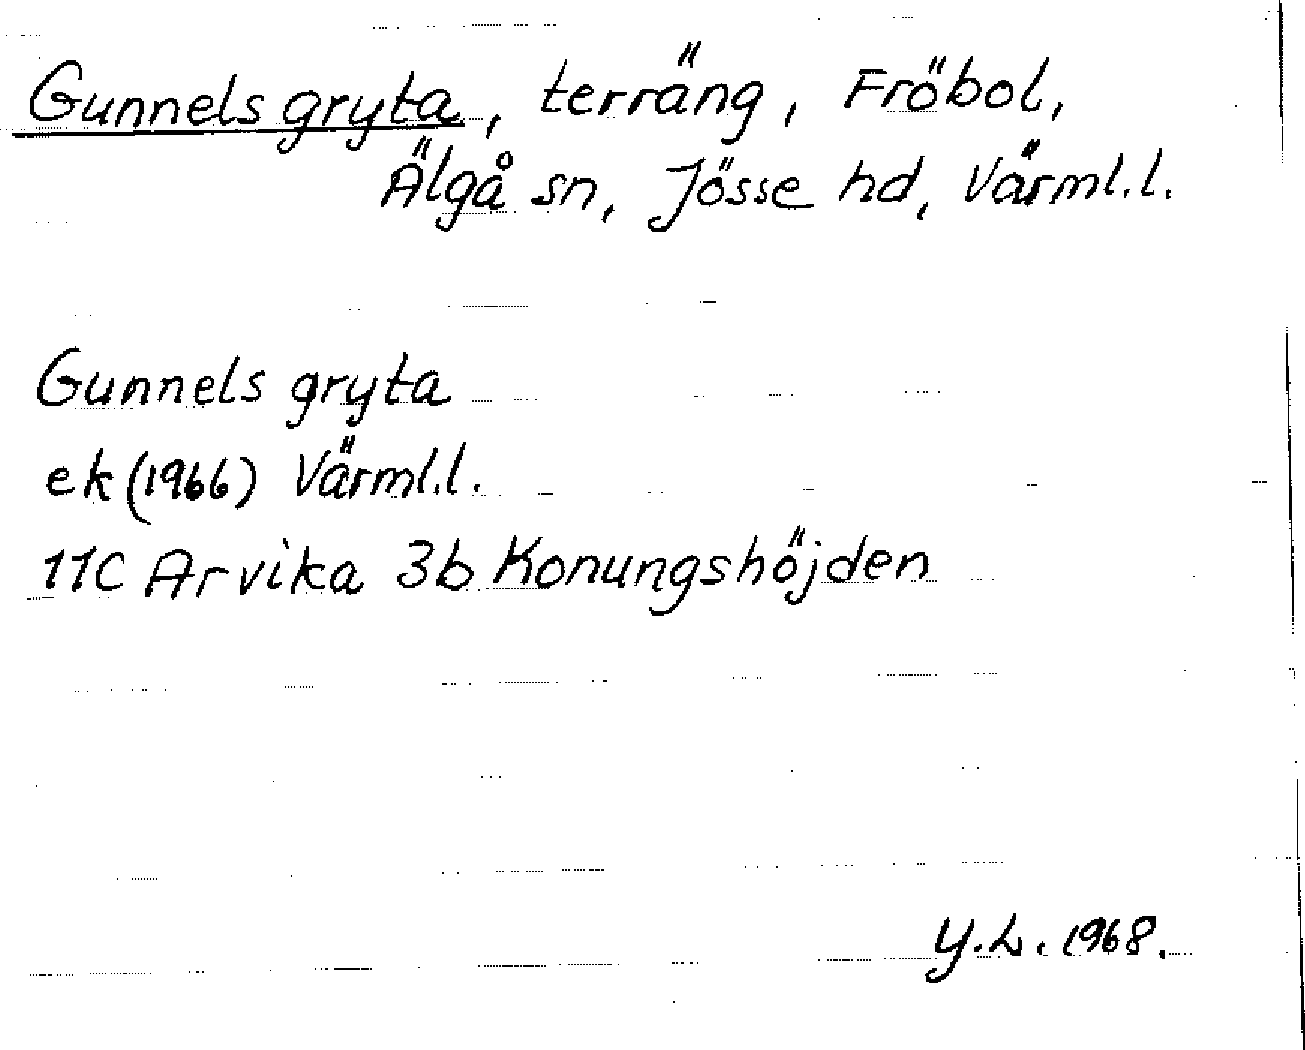 Gunnels gryta, terräng, Fröbol,
Älgå sn, Jösse hd, Värml.l.
Gunnels gryta
ek (1966) Värml.l.
11C Arvika 3b Konungshöjden
Y.L. 1968.